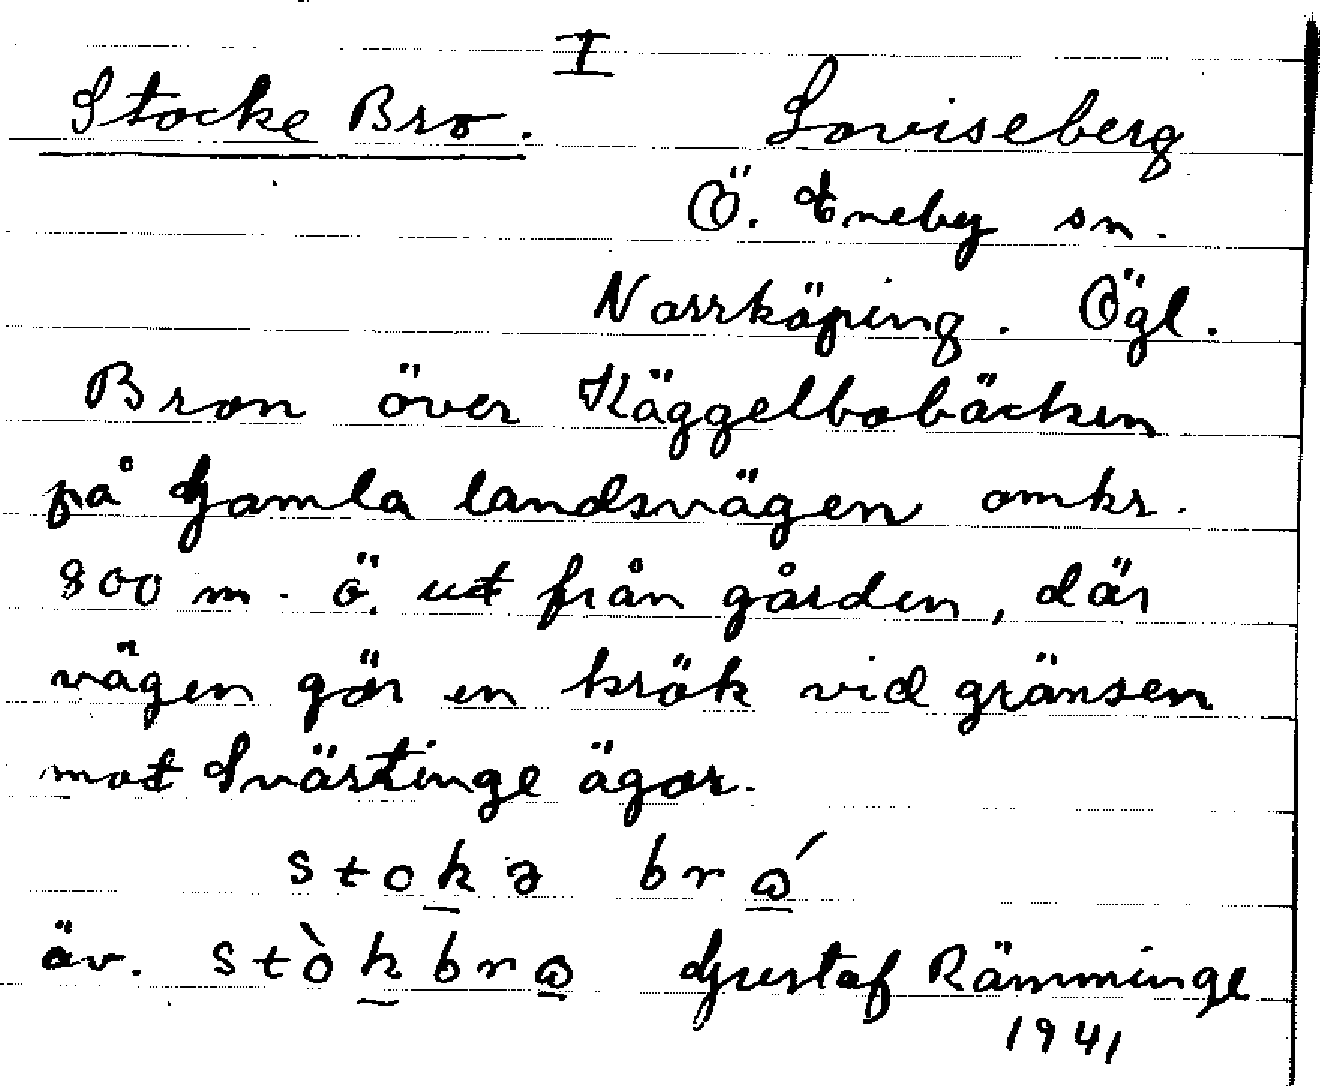 I
Stocke Bro. Loviseberg
Ö. Eneby sn.
Norrköping. Ögl.
Bron över Käggelbobäcken
på Gamla landsvägen omkr.
800 m. ö. ut från gården, där
vägen gör en krök vid gränsen
mot Svärtinge ägor.
stokə brɷ́
äv. stòkbrɷ Gustaf Rämminge
1941